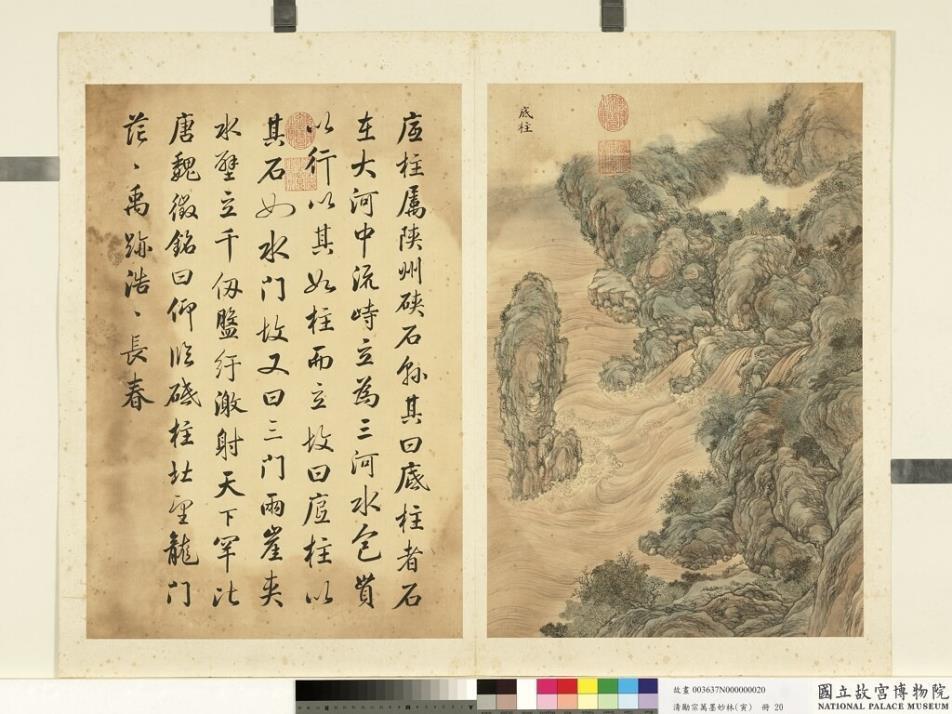 底柱
底柱屬陝州硤石縣其曰底柱者石
在大河中流峙立為三河水包貫
以行以其如柱而立故曰底柱以
其石如水門故又曰三門兩崖夾
水壁立千仞盤紆激射天下罕比
唐魏徵銘曰仰臨砥柱北望龍門
茫、禹跡浩、長春
故畫 003637N000000020
清勵宗萬墨妙珠林(寅) 冊 20
國立故宮博物院
NATIONAL PALACE MUSEUM